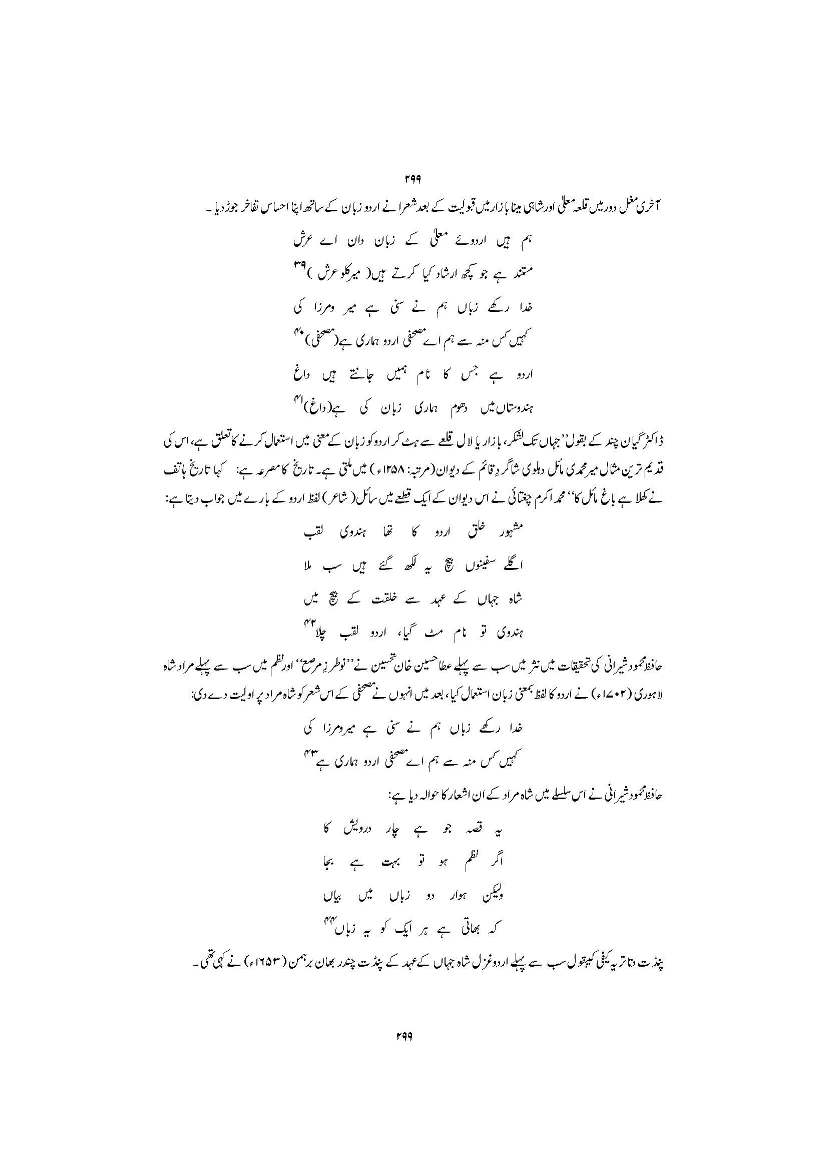 ۲۹۹
آخری مغل دور میں قلعہ معلّٰی اور شاہی مینا بازار میں قبولیت کے بعد شعرا نے اردو زبان کے ساتھ اپنا احساس تفاخر جوڑ دیا ۔
ہم ہیں اردوئے معلّٰی کے زبان دان اے عرش
مستند ہے جو کچھ ارشاد کیا کرتے ہیں( میرکلو عرش )۳۹
خدا رکھے زباں ہم نے سنی ہے میر ومرزا کی
کہیں کس منہ سے ہم اے مصحفی اردو ہماری ہے(مصحفی)۴۰
اردو ہے جس کا نام ہمیں جانتے ہیں داغ
ہندوستاں میں دھوم ہماری زبان کی ہے(داغ)۴۱
ڈاکٹر گیان چند کے بقول‘‘جہاں تک لشکر، بازار یا لال قلعے سے ہٹ کر اردو کو زبان کے معنی میں استعمال کرنے کا تعلق ہے، اس کی
قدیم ترین مثال میر محمدی مائل دہلوی شاگردِ قائم کے دیوان(مرتبہ: ۱۲۵۸ء) میں ملتی ہے۔ تاریخ کا مصرعہ ہے: کہا تاریخ ہاتف
نے کھلا ہے باغ مائل کا‘‘ محمد اکرم چغتائی نے اس دیوان کے ایک قطعے میں سائل( شاعر) لفظ اردو کے بارے میں جواب دیتا ہے:
مشہور خلق اردو کا تھا ہندوی لقب
اگلے سفینوں بیچ یہ لکھ گئے ہیں سب ملا
شاہ جہاں کے عہد سے خلقت کے بیچ میں
ہندوی تو نام مٹ گیا، اردو لقب چلا۴۲
حافظ محمود شیرانی کی تحقیقات میں نثر میں سب سے پہلے عطا حسین خان تحسین نے‘‘نوطرزِ مرصع‘‘ اور نظم میں سب سے پہلے مراد شاہ
لاہوری (۱۷۰۲ء) نے اردو کا لفظ بمعنی زبان استعمال کیا، بعد میں انہوں نے مصحفی کے اس شعر کو شاہ مراد پر اولیت دے دی:
خدا رکھے زباں ہم نے سنی ہے میر ومرزا کی
کہیں کس منہ سے ہم اے مصحفی اردو ہماری ہے۴۳
حافظ محمود شیرانی نے اس سلسلے میں شاہ مراد کے ان اشعار کا حوالہ دیا ہے:
یہ قصہ جو ہے چار درویش کا
اگر نظم ہو تو بہت ہے بجا
ولیکن ہوار دو زباں میں بیاں
کہ بھاتی ہے ہر ایک کو یہ زباں۴۴
پنڈت دتاتریہ کیفی کے بقول سب سے پہلے اردو غزل شاہ جہاں کے عہد کے پنڈت چندر بھان برہمن (۱۶۵۳ء) نے کہی تھی۔
۲۹۹